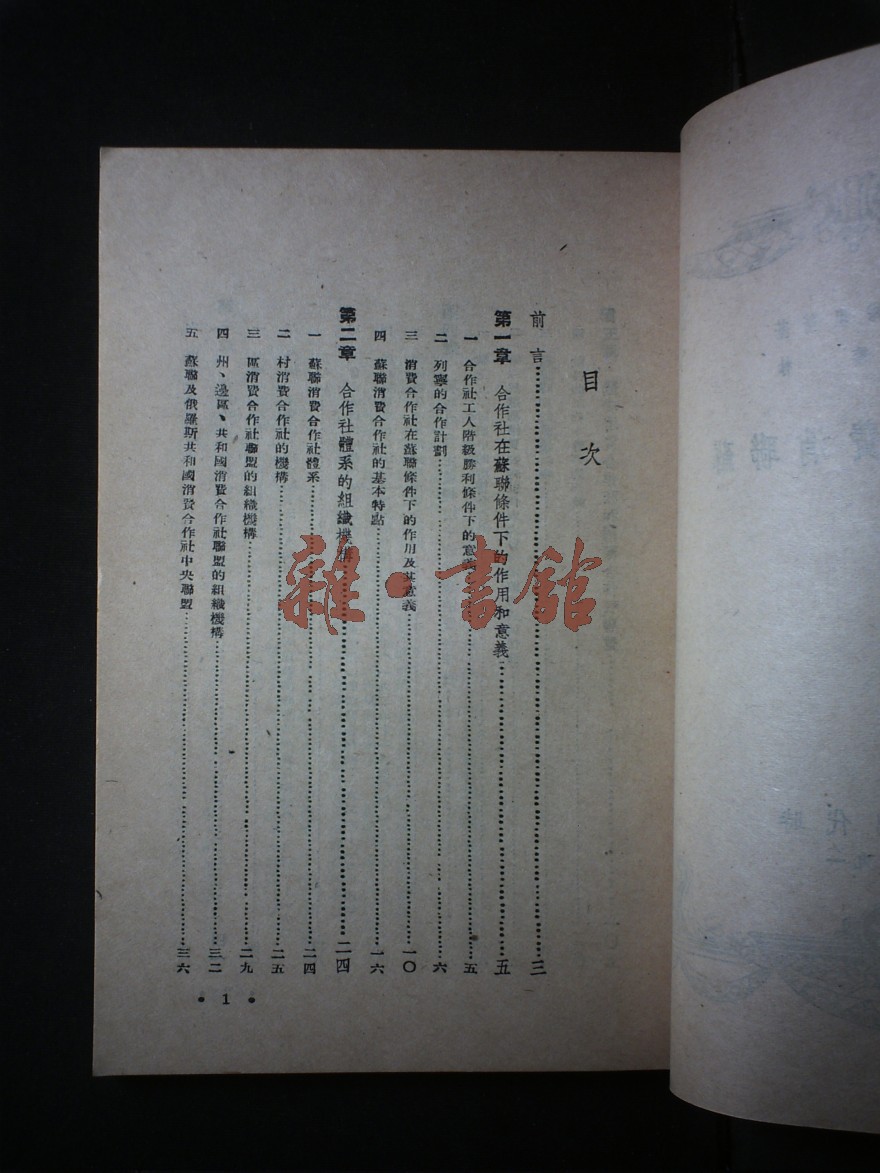 目次
前言……三
第一章 合作社在蘇聯條件下的作用和意義……五
一 合作社工人階級勝利條件下的意義……五
二 列寧的合作計劃……六
三 消費合作社在蘇聯條件下的作用及其意義……一〇
四 蘇聯消費合作社的基本特點……一六
第二章 合作社體系的組織機構……二四
一 蘇聯消費合作社體系……二四
二 村消費合作社的機構……二五
三 區消費合作社聯盟的組織機構……二九
四 州、邊區、共和國消費合作社聯盟的組織機構……三二
五 蘇聯及俄羅斯共和國消費合作社中央聯盟……三六
• 1 •
雜·書館